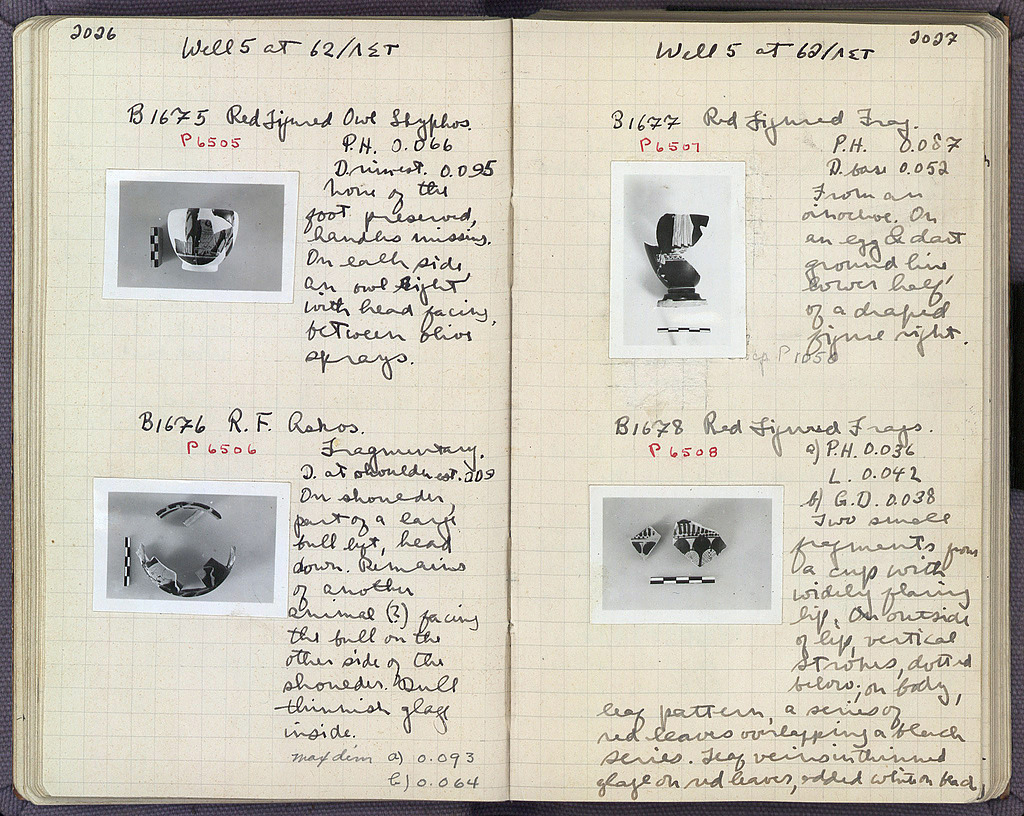 2026
Well 5 at 62/ΛΣΤ
B1675 Red Figured Owl Skyphos.
P 6505
P.H. 0.066
D. rim est. 0.095
None of the
foot preserved,
handles missing.
On each side,
an owl right
with head facing,
between olive
sprays.
B1676 R.F. Askos.
P 6506
Fragmentary.
D. at shoulder est. .209
On shoulder,
part of a large
bull left, head
down. Remains
of another
animal (?) facing
the bull on the
other side of the
shoulder. Dull
thinnish glaze
inside.
max dim a) 0.093
b) 0.064
2027
Well 5 at 62/ΛΣΤ
B1677 Red Figured Frag.
P 6507
P.H. 0.087
D. base 0.052
From an
oinochoe. On
an egg & dart
ground line
lower half
of a draped
figure right.
P 1050
B1678 Red Figured Frags.
P 6508
a) P.H. 0.036
L. 0.042
b) G.D. 0.038
Two small
fragments from
a cup with
widely flaring
lip. On outside
of lip, vertical
strokes, dotted
below; on body,
leaf pattern, a series of
red leaves overlapping a black
series. Leaf veins in thinned
glaze on red leaves, added white on black,